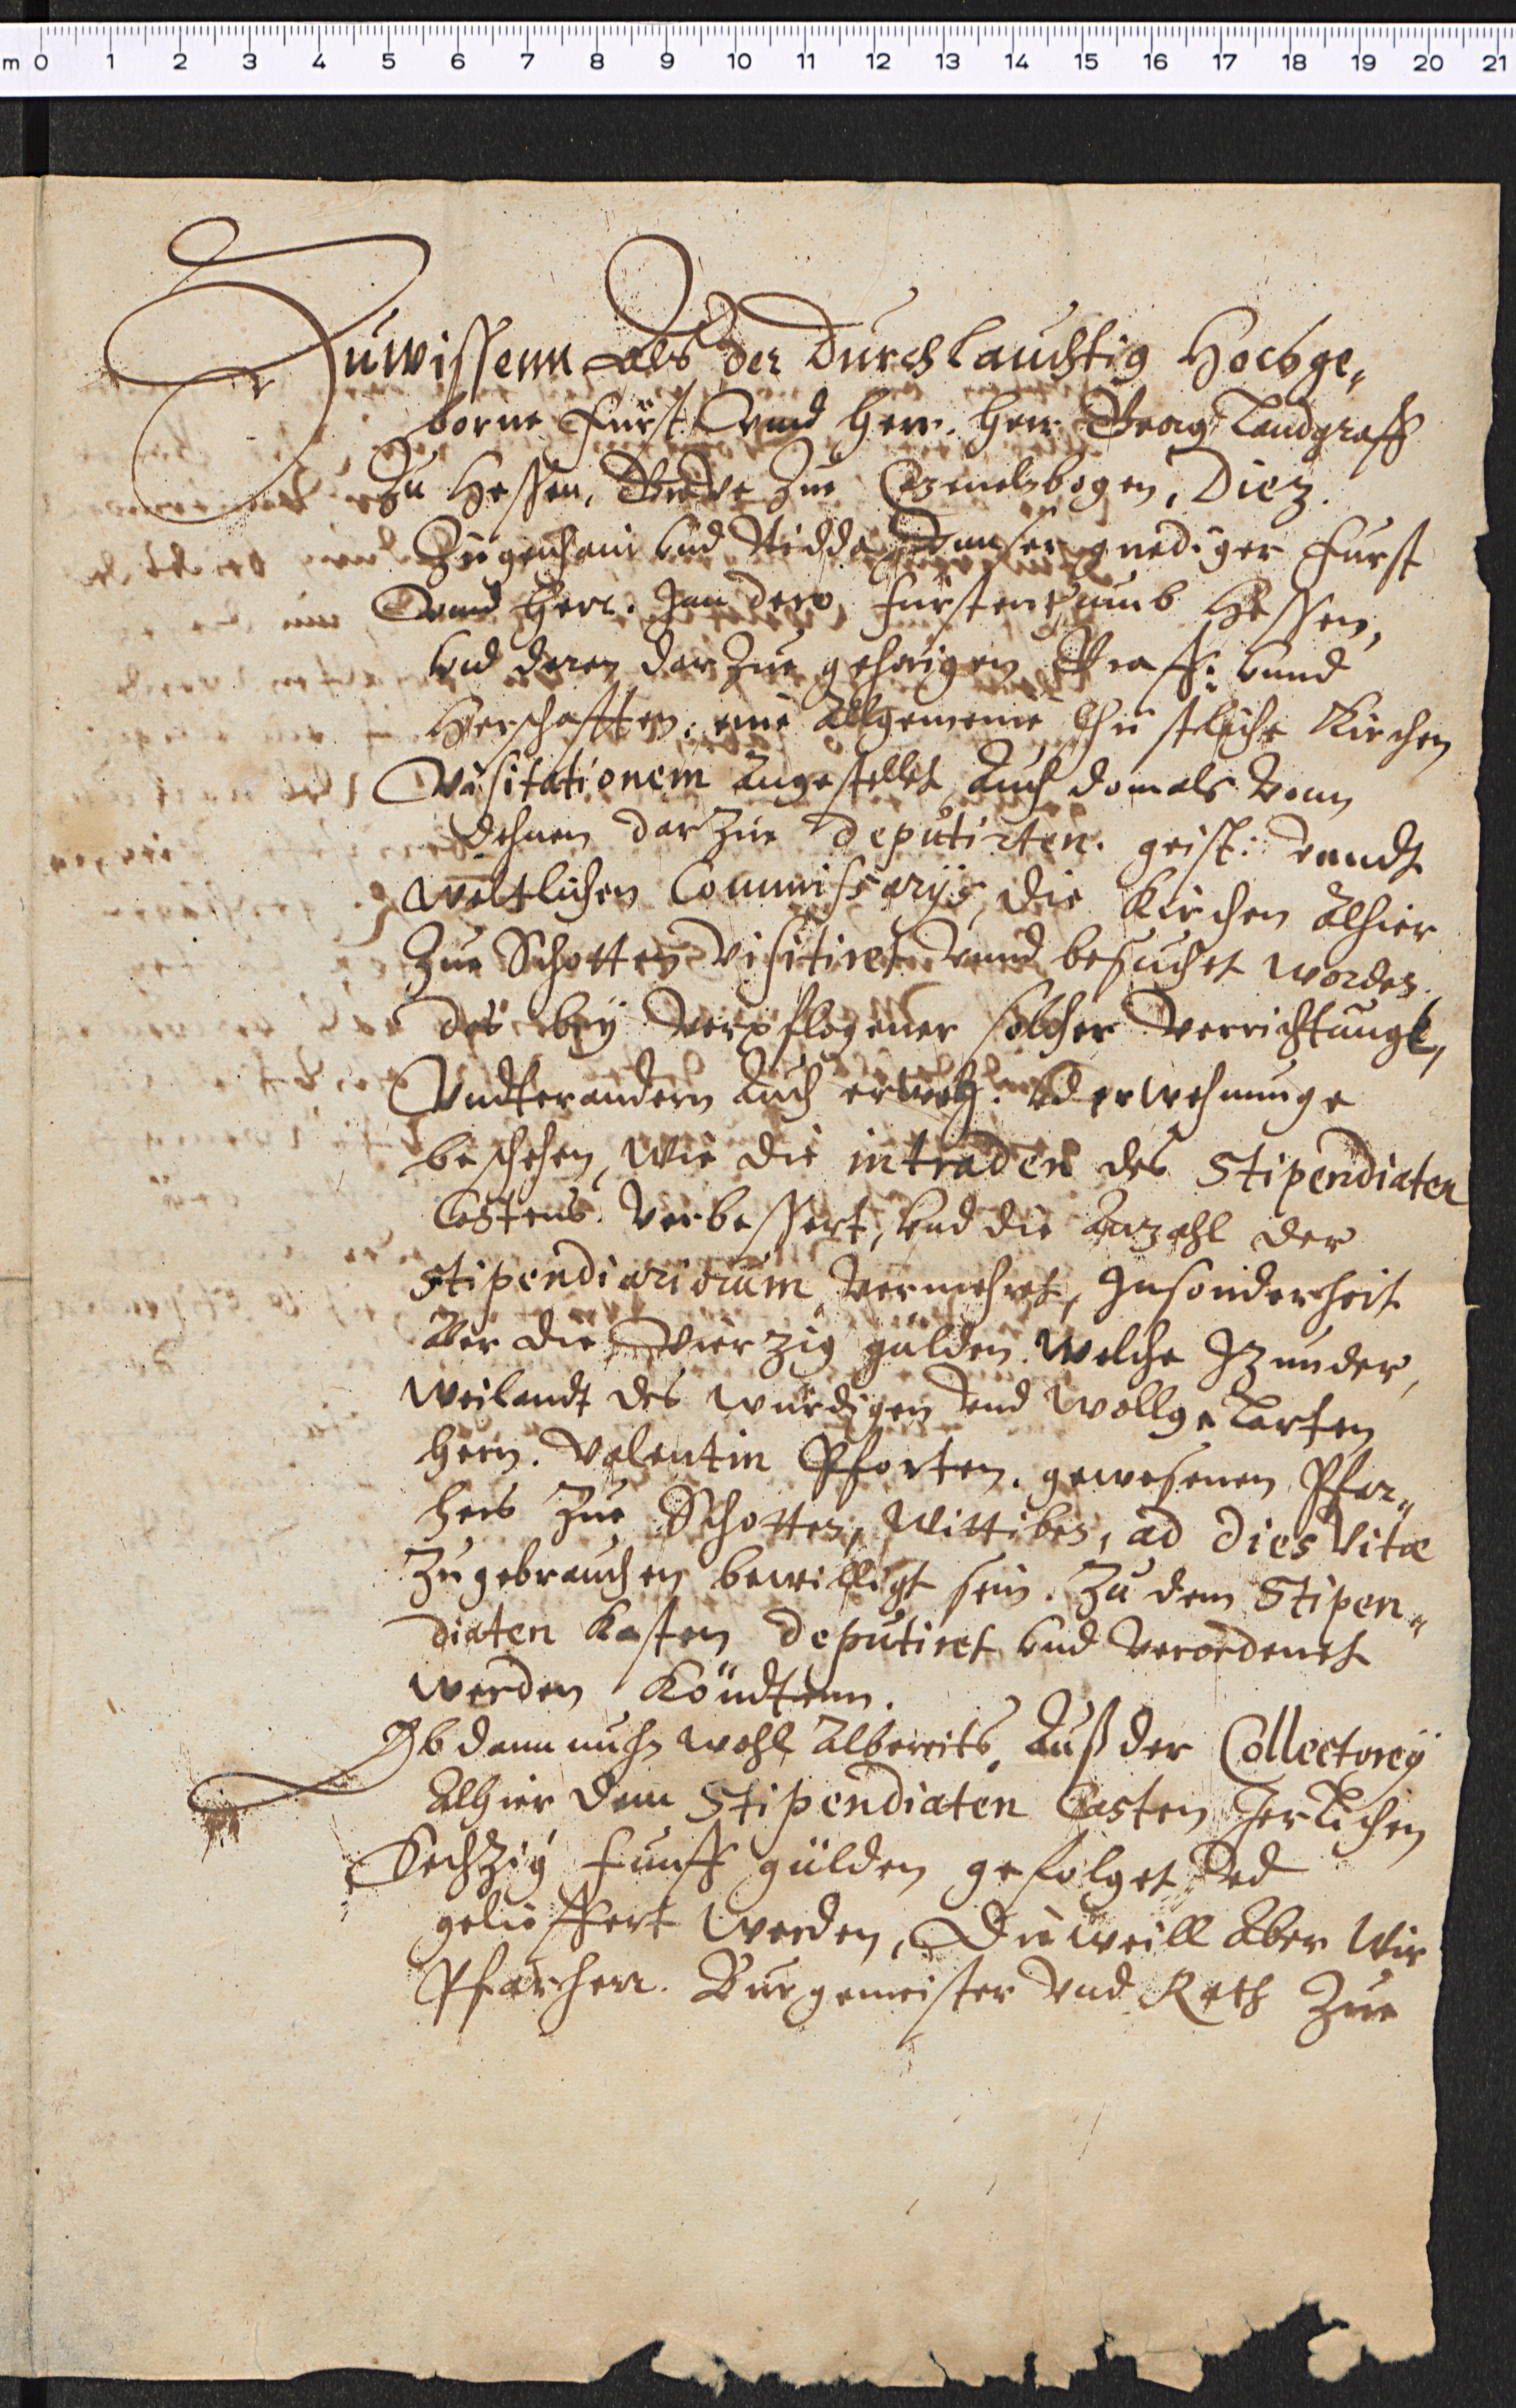 m 0 1 2 3 4 5 6 7 8 9 10 11 12 13 14 15 16 17 18 19 20 21
Zuwissenn Als der Durchlauchtig Hochge„
borne Fürst Vnnd Herr. Herr Georg Landgraff
Zu Hessen, Graue Zue Cazenelnbogen, Diez.
Zigenhain vnd Nidda Vnnser gnediger Fürst
Vnnd Herr. Inn dero Fürstenthumb Hessen,
vnd deren darZue gehörigen Graff: vnnd
Herschafften, eine Allgemeine Christliche Kirchen
Visitationem Angestellet, Auch domals Vonn
dehnen darZue deputirten. geist: vnndt
weltlichen Commissarijs, die Kirchen Alhier
Zue Schotten visitiret vnnd besuchet worden.
das bey verpflogener solcher verrichtunge,
Vndterandern Auch vnd erwehnunge
beschehen, Wie die intraden des Stipendiaten
Castens. verbessert, vnd die Anzahl der
Stipendiariorum, vermehret, Insonderheit
Aber die Vierzig gülden. welche Izunder,
weilandt des würdigen vnd wollgelarten
Hern. Valentin Pforten. gewesenen Pfar„
hers Zue Schotten, Wittiben, ad dies Vitæ
Zugebrauchen bewilligt sein. Zu dem Stipen„
diaten Kasten deputiret vnd verordenet
werden Köndtenn.
Ob dann nuhn wohl Albereits, Auß der Collectorey
Alhier dem Stipendiaten Casten Jerlichen
Sechzig Funff gülden gefolget vnd
gelieffert werden, Dieweill Aber Wir
Pfarherr. Burgemeister vnd Rath Zue